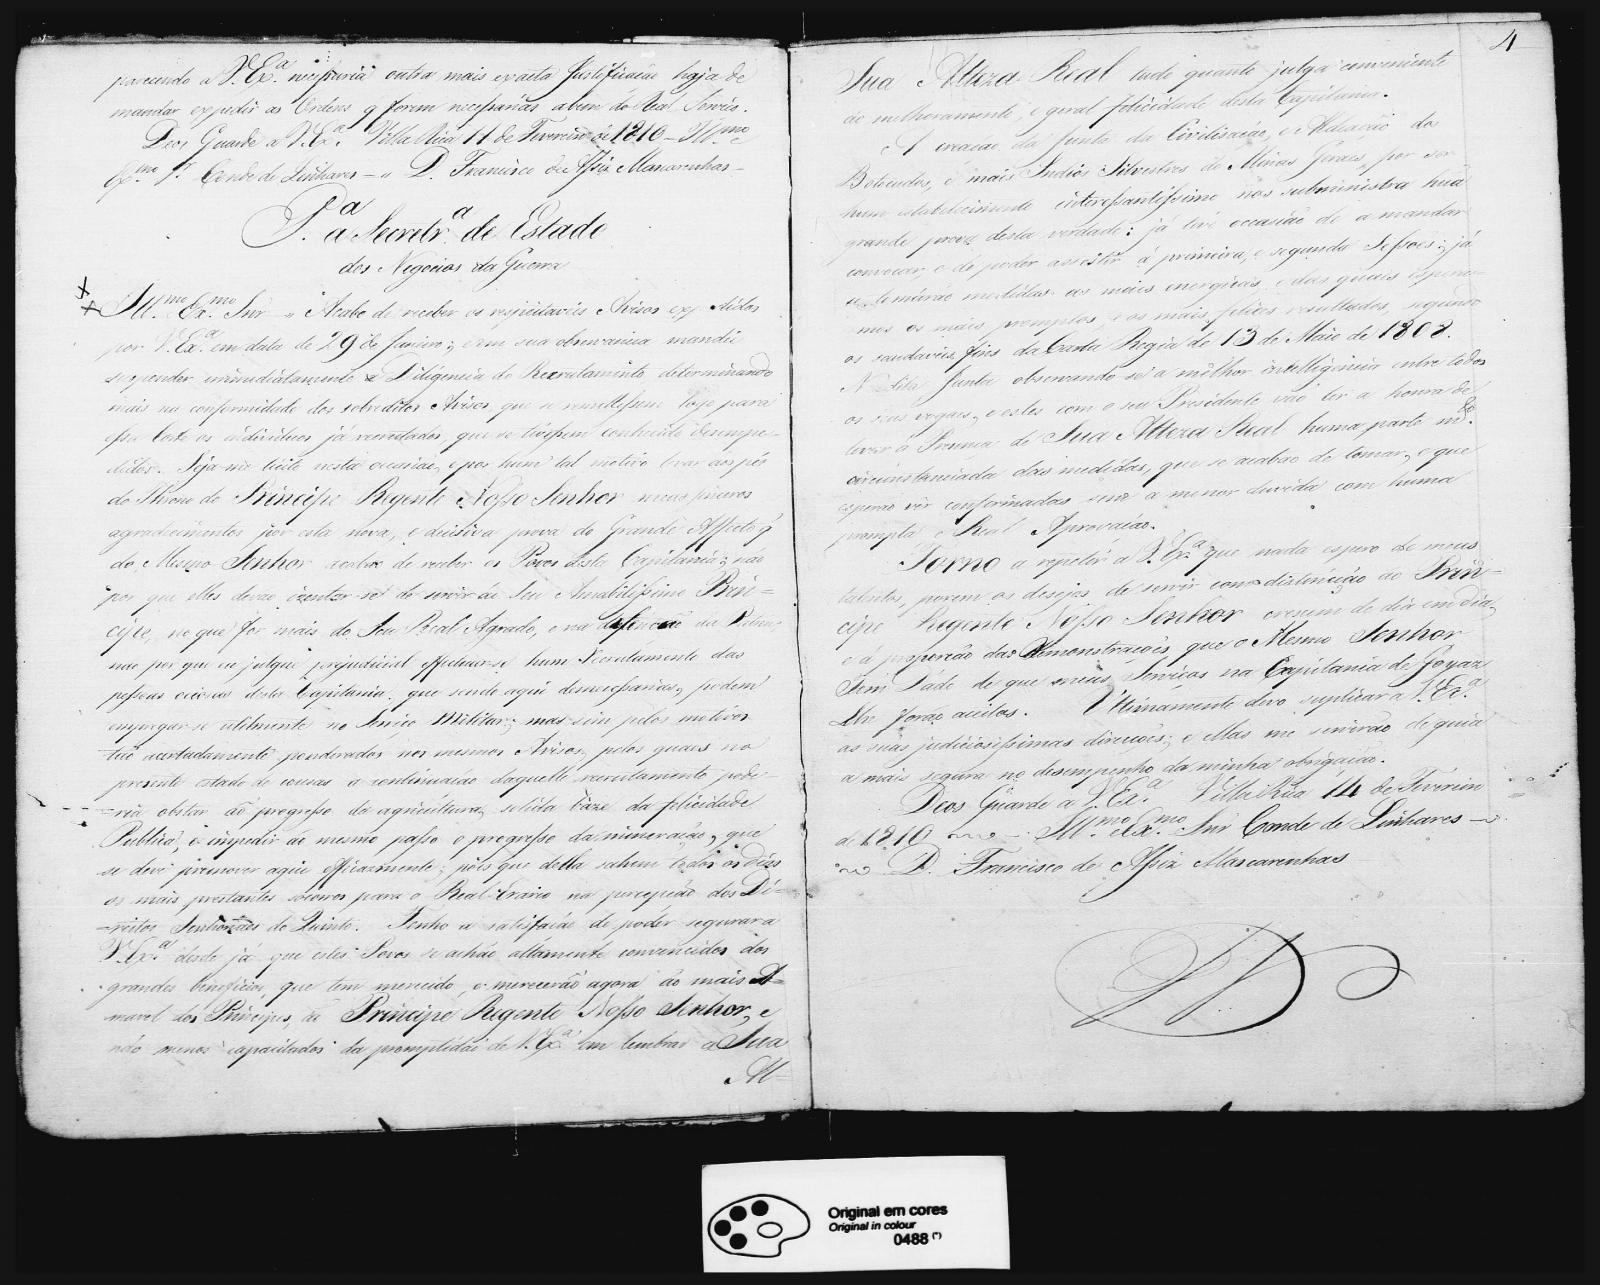 parecendo a V. Ex.ª necessaria outra mais exacta Justificação haja de
mandar expedir as Ordens q forem necessarias a bem do Real Serviço.
Deos Guarde a V. Ex.ª Villa Rica 11 de Fevereiro de 1810 – Ill.mo e
Ex.mo Sr. Conde de Linhares – " D. Francisco de Assiz Mascarenhas –
P.ª a Secretr.ª de Estado
dos Negocios da Guerra
Ill.mo Ex.mo Snr " Acabo de receber os respeitaveis Avisos expedidos
por V. Ex.ª em data de 29 de Janeiro; e em sua observancia mandei
suspender immediatamente a Diligencia do Recrutamento determinando
mais na conformidade dos sobreditos Avisos, que se remettessem logo para
essa Corte os individuos já recrutados, que se tivessem conhecido desempe-
didos. Seja-me licito nesta occasião, e por hum tal motivo levar aos pés
do Throno do Principe Regente Nosso Senhor meus puros
agradecimentos por esta nova, e decisiva prova do Grande Affecto q
do Mesmo Senhor acabão de receber os Povos desta Capitania; não
por que elles devão izentar-se de servir ao Seu Amabilissimo Prin=
cipe, no que for mais do Seu Real Agrado, e na defensão da Patria
não por que eu julgue prejudicial effectuar-se hum Recrutamento das
pessoas ociosas desta Capitania, que sendo aqui desnecessarias, podem
empregar-se utilmente no Serviço Militar; mas sim pelos motivos
tão acertadamente ponderados nos mesmos Avisos, pelos quaes no
presente estado de cousas a continuação daquelle recrutamento pode-
ria obstar ao progresso da agricultura, solida baze da felicidade
Publica, e impedir ao mesmo passo o progresso da mineração, que
se deve promover aqui efficazmente; pois que della sahem todos os dias
os mais prestantes socorros para o Real Erario na percepção dos Di-
reitos Senhoriaes do Quinto. Tenho a satisfação de poder segurar a
V. Ex.ª desde já que estes Povos se achão altamente convencidos dos
grandes beneficios, que tem merecido, e merecerão agora ao mais A=
mavel dos Principes, ao Principe Regente Nosso Senhor, e
não menos capacitados da promptidão de V. Ex.ª em lembrar a Sua
Al=
4
Sua Alteza Real tudo quanto julga conveniente
ao melhoramento, e geral felicidade desta Capitania.
A creação da Junta da Civilisação, e Aldeação dos
Botecudos, e mais Indios Silvestres de Minas Geraes, por ser
hum estabelecimento interessantissimo nos subministra huã
grande prova desta verdade: já tive occasião de a mandar
convocar e de poder assistir á primeira, e segunda Sessões; já
se tomárão medidas as mais energicas, e das quaes espera-
mos os mais promptos, e os mais felices resultados, segundo
os saudaveis fins da Carta Regia de 13 de Maio de 1808.
Nesta Junta observando-se a milhor intelligencia entre todos
os seus vogaes, e estes com o seu Presidente vão ter a honra de
levar á Prezença de Sua Alteza Real huma parte m.to
circunstanciada das medidas, que se acabão de tomar, e que
esperão vêr confirmadas sem a menor duvida com huma
prompta, e Real Aprovação.
Torno a repetir a V. Ex.ª que nada espero de meus
talentos, porem os desejos de servir com distincção ao Prin=
cipe Regente Nosso Senhor crescem de dia em dia,
e á proporção das Demonstrações, que o Mesmo Senhor
Tem Dado de que meus Serviços na Capitania de Goyaz
Lhe forão aceitos. Ultimamente devo suplicar a V. Ex.ª
as suas judiciosissimas direcções; e Ellas me servirão de guia
a mais segura no desempenho da minha obrigação.
Deos Guarde a V. Ex.ª Villa Rica 14 de Fevereiro
de 1810 Ill.mo e Ex.mo Snr Conde de Linhares
D. Francisco de Assiz Mascarenhas
Original em cores
Original in colour
0488 (*)